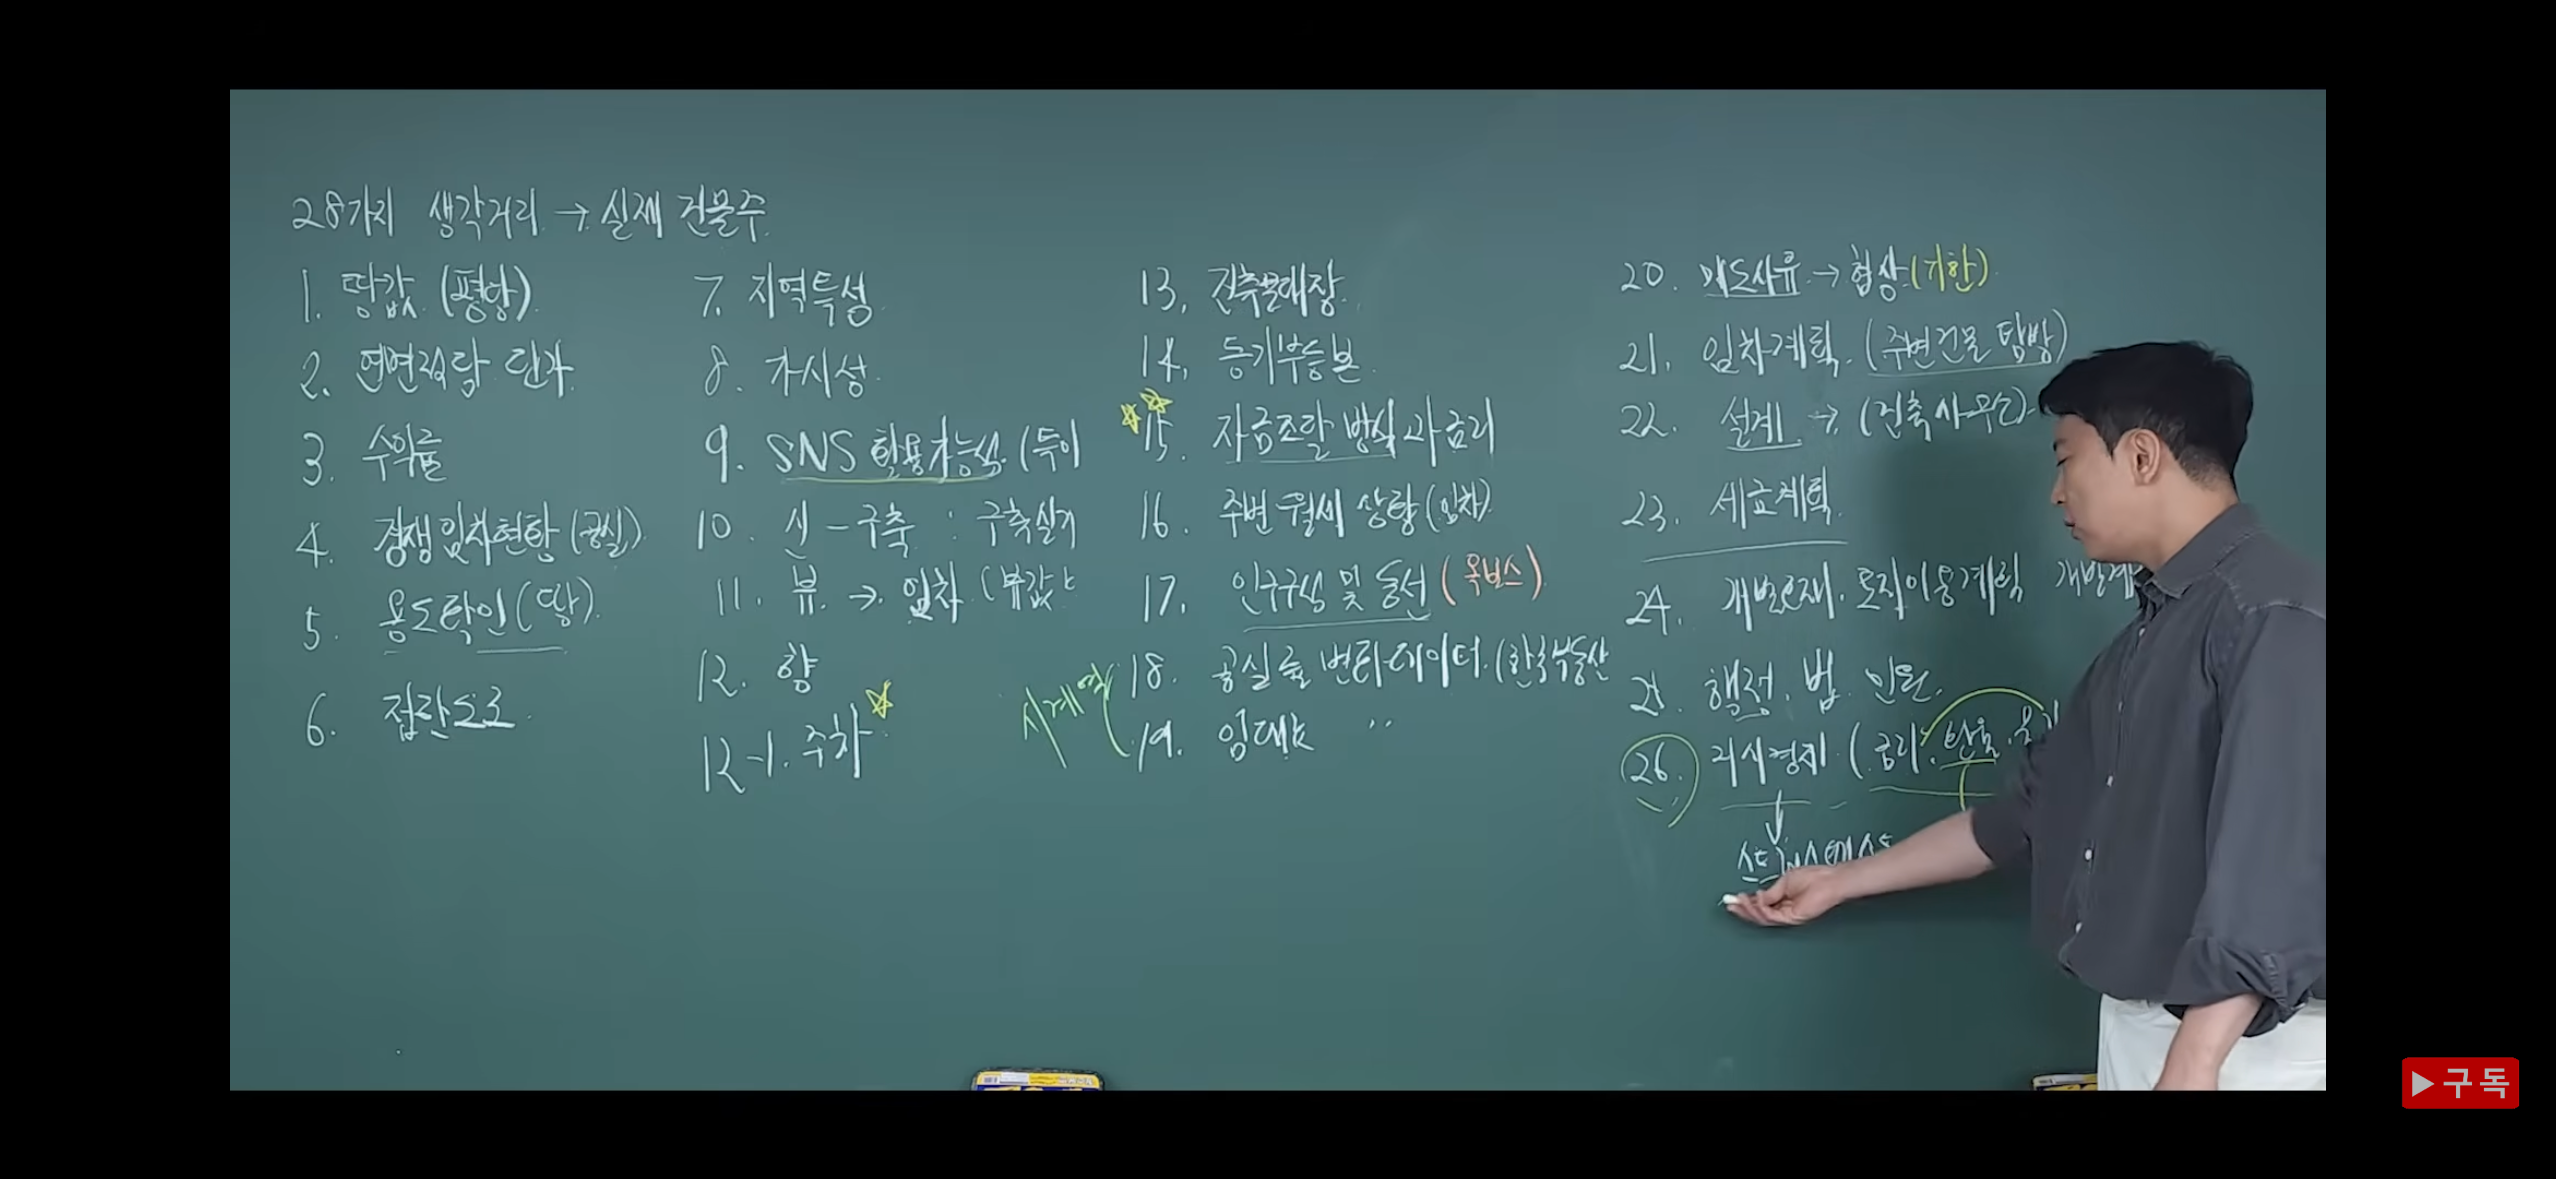 28가지 생각거리 → 실제 건물주
1. 땅값 (평당)
2. 연면적당 단가
3. 수익률
4. 경쟁임차현황 (공실)
5. 용도확인 (땅)
6. 접한도로
7. 지역특성
8. 가시성
9. SNS 활용가능성
10. 신-구축 : 구축실거
11. 뷰 → 임차 (뷰값
12. 향
12-1. 주차
13. 건축물대장
14. 등기부등본
15. 자금조달 방식과 금리
16. 주변 월세 상황 (임차)
17. 인구구성 및 동선 (옥빌스)
시계열
18. 공실률 변화 데이터 (한국부동산
19. 임대료 "
20. 매도사유 → 협상 (기한)
21. 임차계획 (주변건물 탐방)
22. 설계 → (건축사무소)
23. 세금계획
24. 개발호재. 토지이용계획 개발계
25. 행정. 법. 민원.
26. 거시경제 (금리. 환율.
▶구독